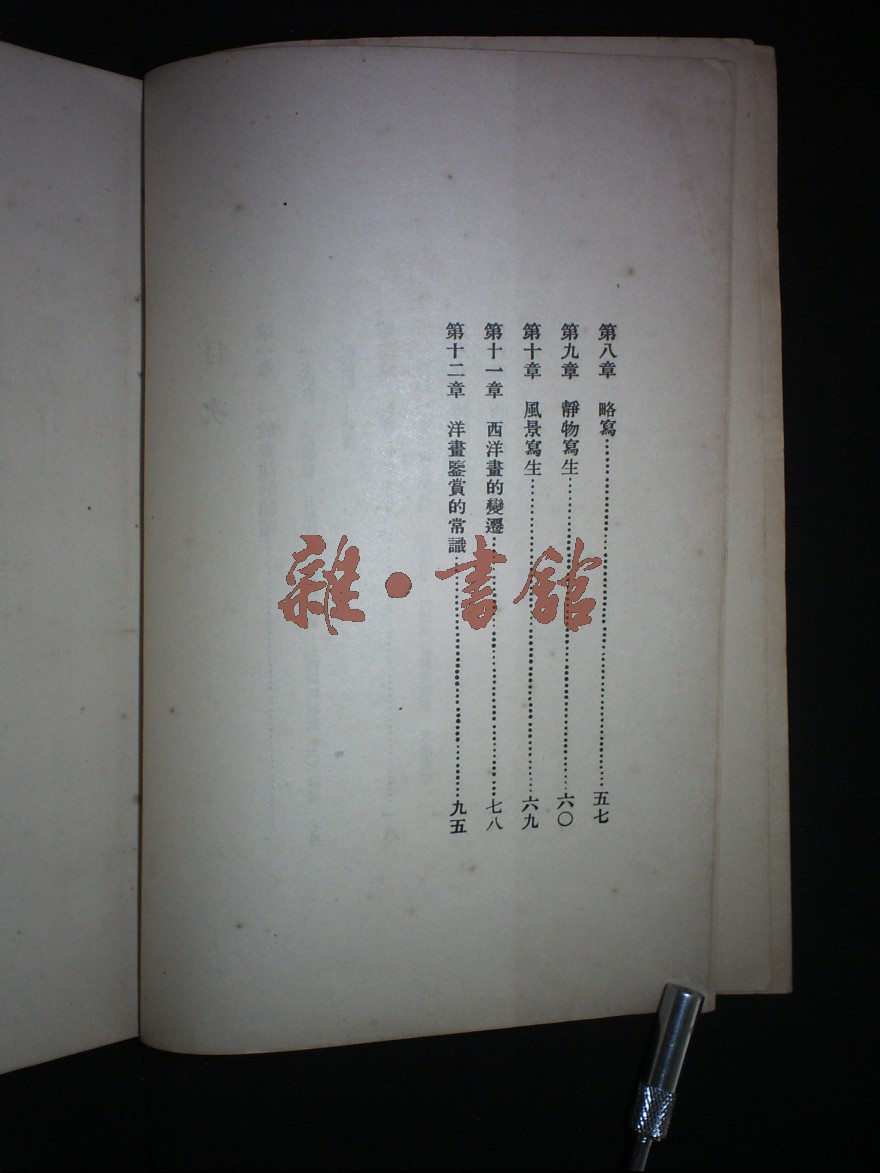 第八章　略寫……五七
第九章　靜物寫生……六〇
第十章　風景寫生……六九
第十一章　西洋畫的變遷……七八
第十二章　洋畫鑒賞的常識……九五
雜·書館
目次